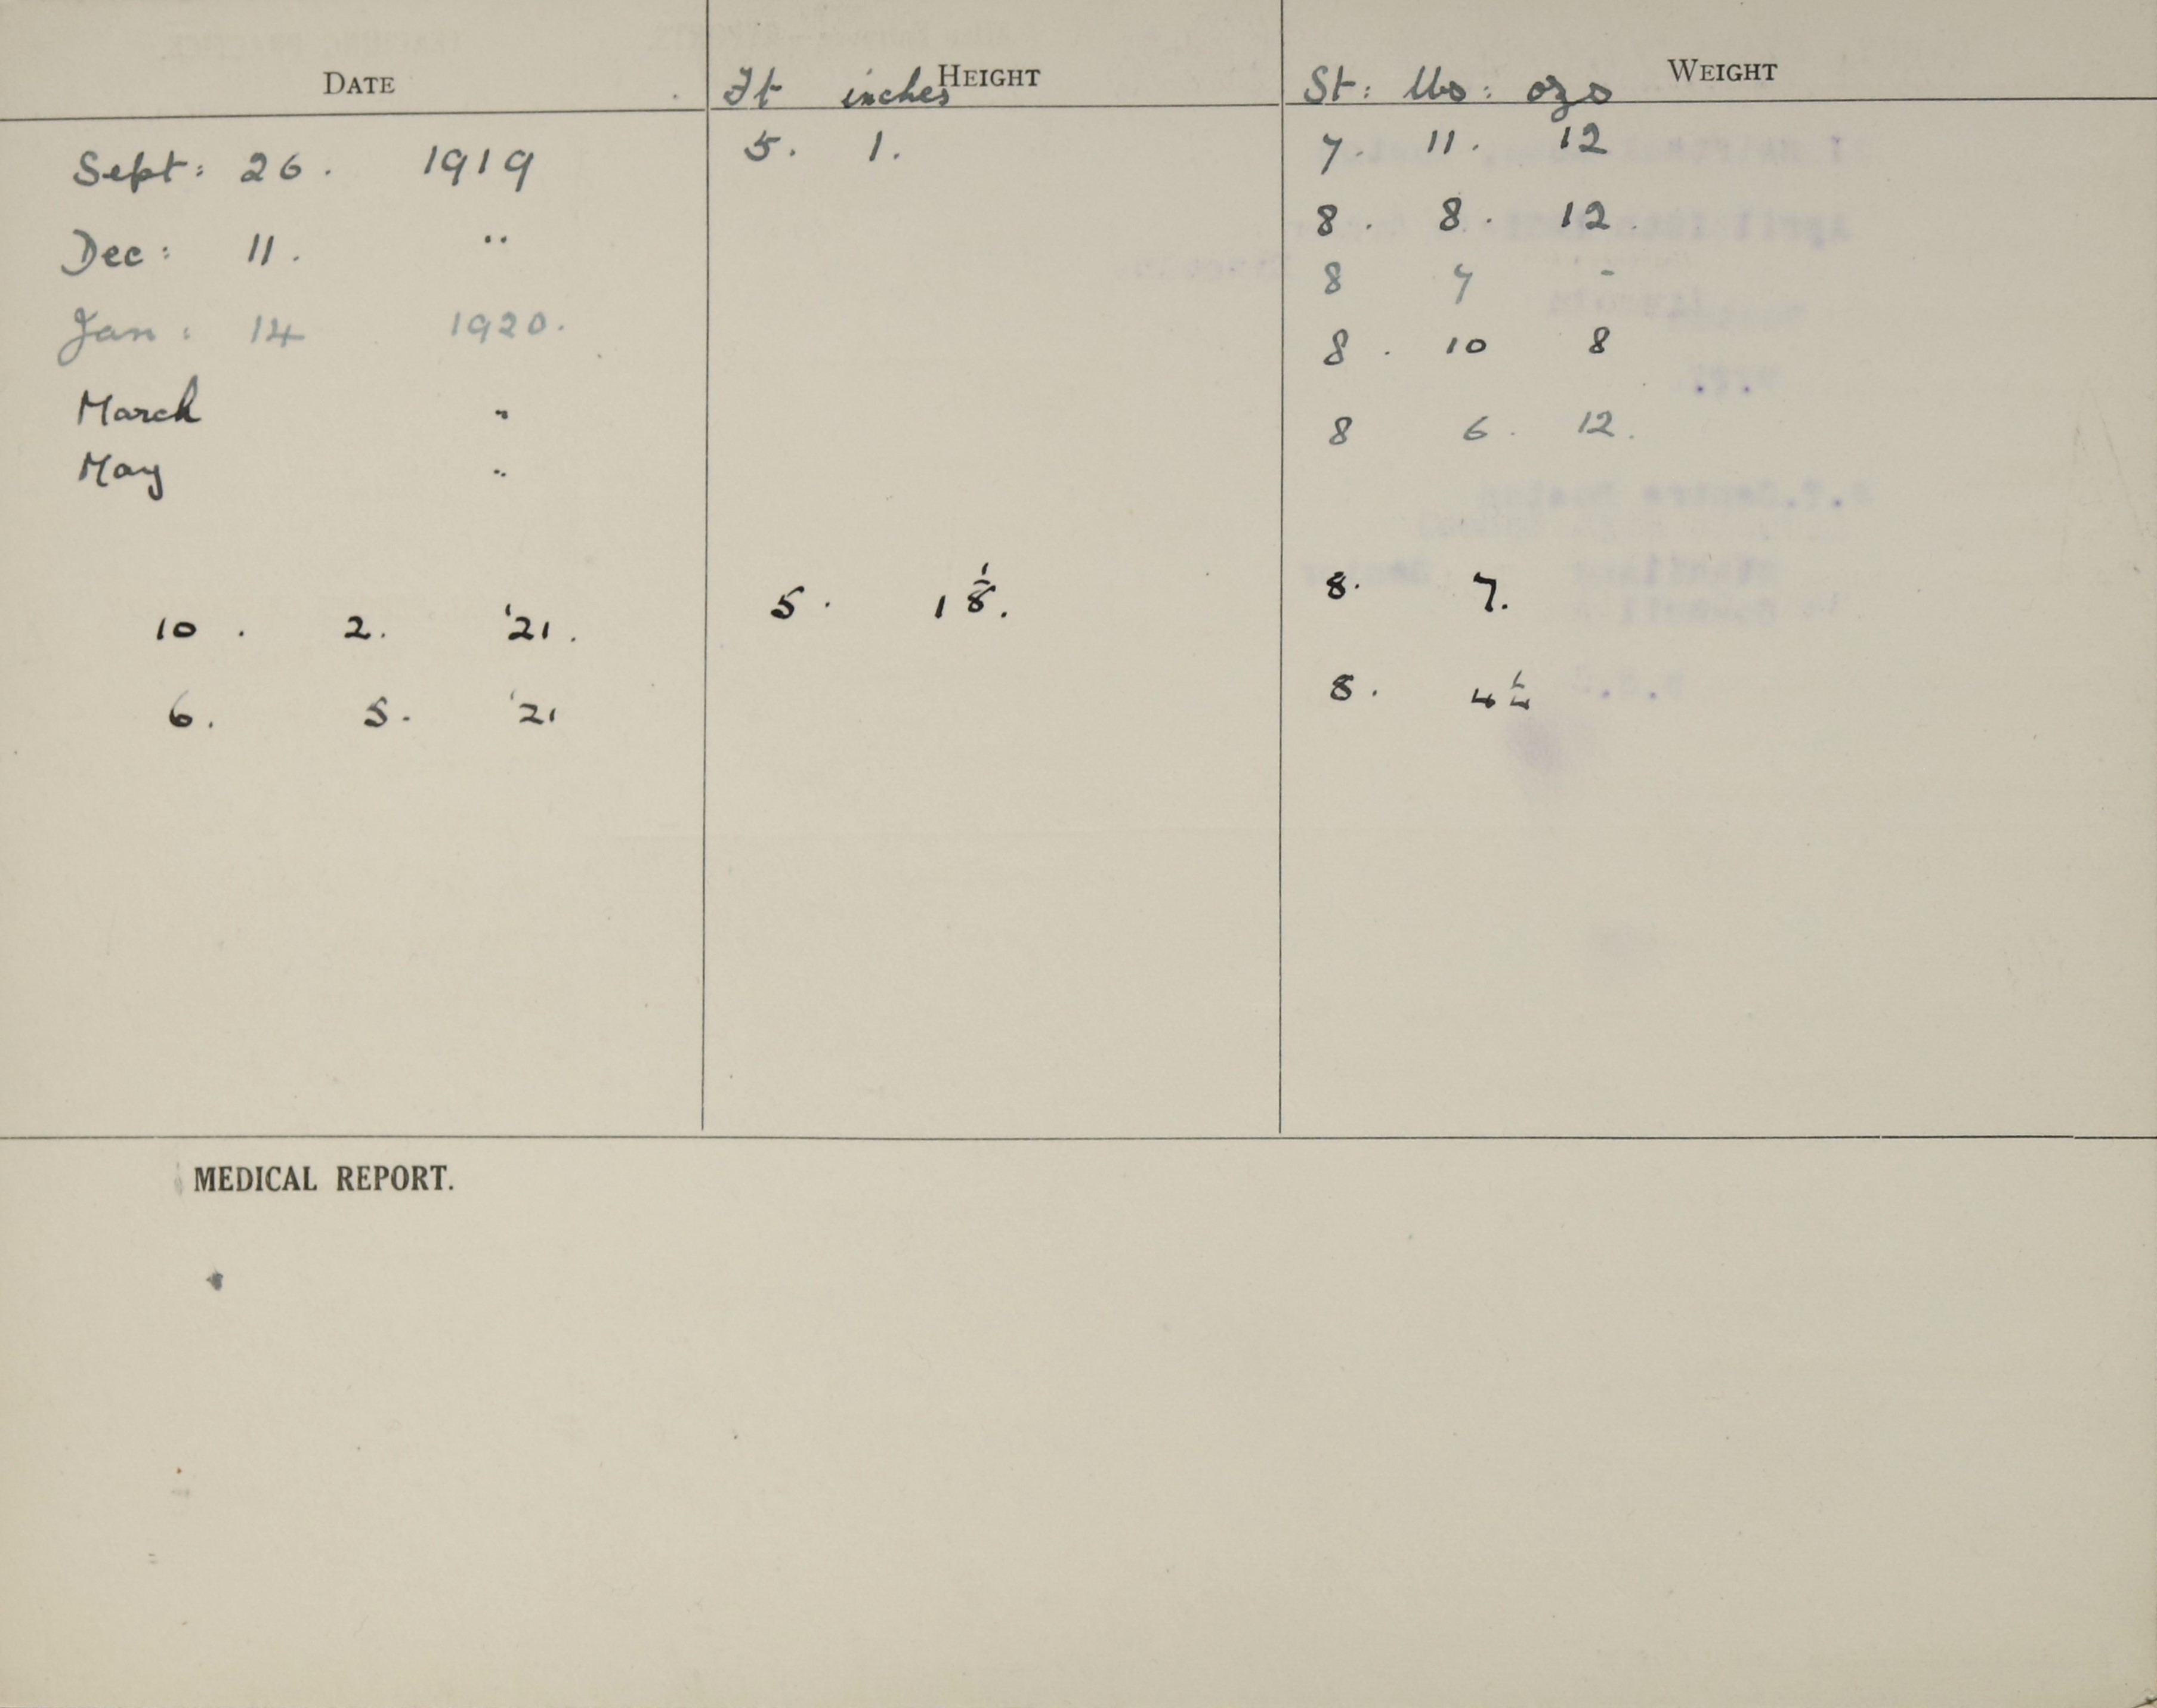 DATE Ft inches HEIGHT St: lbs: ozs WEIGHT
Sept: 26. 1919 5. 1. 7. 11. 12
Dec: 11. " 8. 8. 12.
Jan: 14 1920. 8 7 -
March " 8. 10 8
May " 8 6. 12.
10. 2. '21. 5. 1 1/8. 8. 7.
6. 5. '21 8. 4
MEDICAL REPORT.